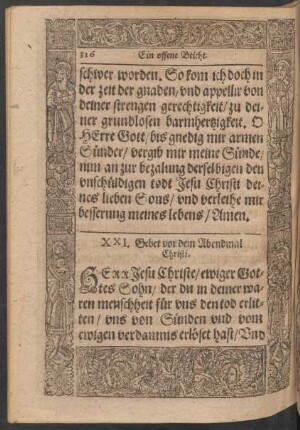 316
Ein offene Beicht.
schwer worden. So kom ich doch in
der zeit der gnaden/ vnd appellir von
deiner strengen gerechtigkeit/ zu dei-
ner grundlosen barmhertzigkeit. O
HErre Gott/ bis gnedig mir armen
Sünder/ vergib mir meine Sünde/
nim an zur bezalung derselbigen den
vnschüldigen todt Jesu Christi dei-
nes lieben Sons/ vnd verleihe mir
besserung meines lebens/ Amen.
XXI. Gebet vor dem Abendmal
Christi.
HERR Jesu Christe/ ewiger Got-
tes Sohn/ der du in deiner wa-
ren menschheit für vns den tod erlit-
ten/ vns von Sünden vnd vom
ewigen verdamnis erlöset hast/ Vnd